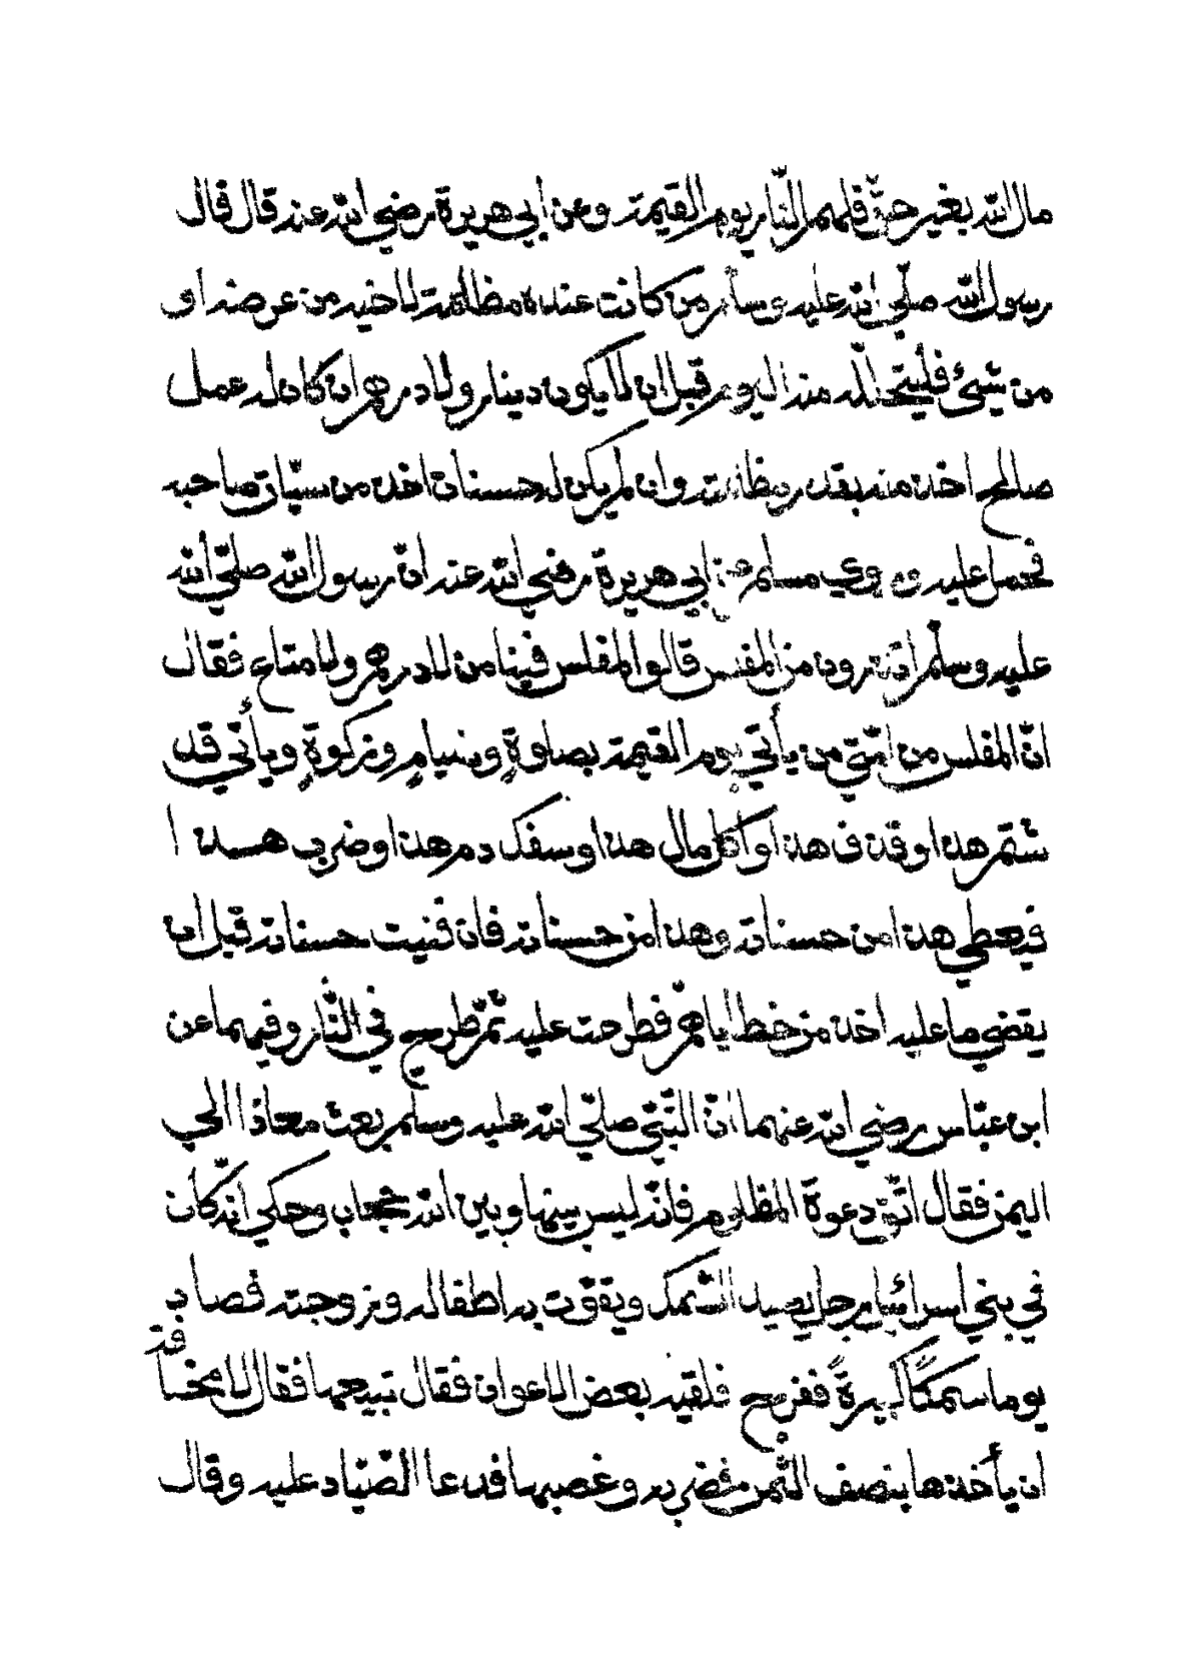 مال الله بغير حقّ فلهم النّار يوم القيمة وعن أبي هريرة رضي الله عنه قال قال
رسول الله صلّي الله عليه وسلّم من كانت عنده مظلمة لاخيه من عرضه او
من شيئ فليتحلّله منه اليوم قبل ان لا يكون دينار ولا درهم ان كان له عمل
صالح اخذ منه بقدر مظلمته وان لم يكن له حسنات اخذ من سيّات صاحبه
فحمل عليه وروي مسلم عن ابي هريرة رضي الله عنه انّ رسول الله صلّي الله
عليه وسلّم اتدرون من المفلس قالوا المفلس فينا من لا درهم ولا متاع فقال
انّ المفلس من امّتي من يأتي يوم القيمة بصلوةٍ وصيامٍ وزكوةٍ ويأتي قد
شتم هذا وقذف هذا واكل مال هذا وسفك دم هذا وضرب هذا
فيعطي هذا من حسناته وهذا من حسناته فان فنيت حسناته قبل ان
يقضي ما عليه اخذ من خطاياهم فطرحت عليه ثمّ طرح في النّار وفيهما عن
ابن عبّاس رضي الله عنهما انّ النّبيّ صلّي الله عليه وسلّم بعث معاذا الي
اليمن فقال اتّق دعوة المظلوم فانّه ليس بينها وبين الله حجاب وحكي انّه كان
في بني اسرائيل رجل يصيد السّمك ويقوّت به اطفاله وزوجته فصاد
يوما سمكةً كبيرةً ففرح فلقيه بعض الاعوان فقال تبيعها فقال لا مخسا فة
ان يأخذها بنصف الثّمن فضربه وغصبها فدعا الصّيّاد عليه وقال